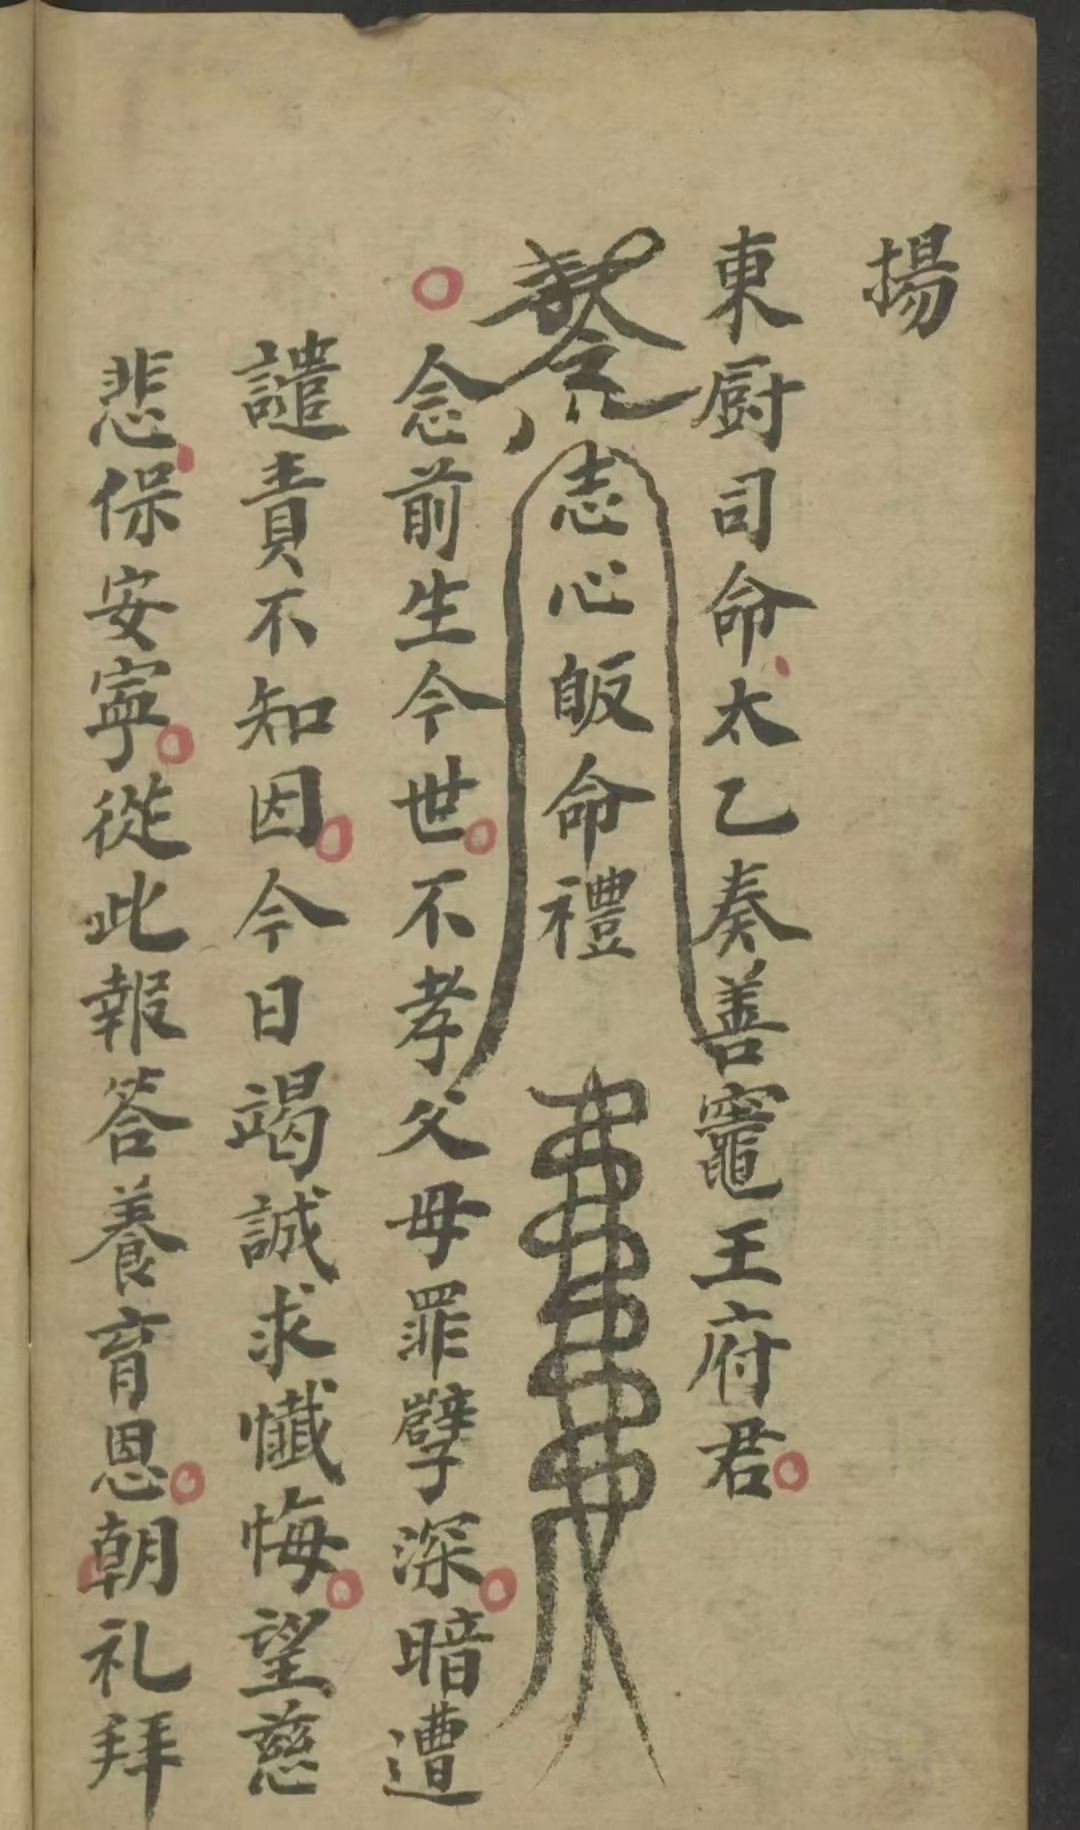 揚
東厨司命太乙奏善竈王府君
志心皈命禮
念前生今世不孝父母罪孽深暗遭
譴責不知因今日竭誠求懺悔望慈
悲保安寧從此報答養育恩朝礼拜